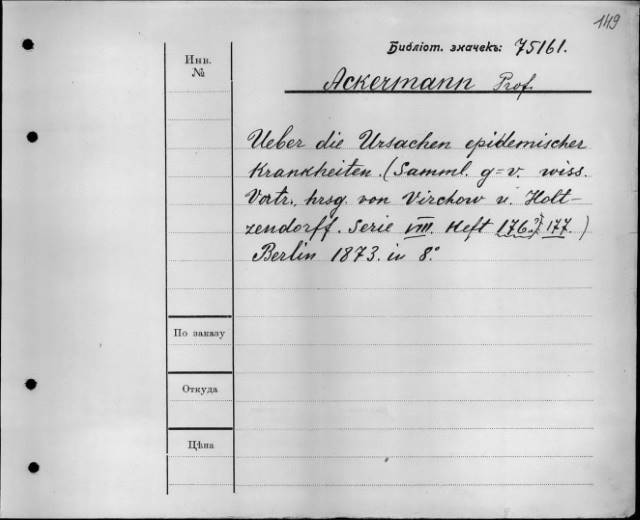 149
Библіот. значекъ: 75161.
Инв.
№
Ackermann Prof.
Ueber die Ursachen epidemischer
Krankheiten. (Samml. g=v. wiss.
Vortr., hrsg. von Virchow u. Holt-
zendorff. Serie VIII. Heft 176 177.)
Berlin 1873. in 8°.
По заказу
Откуда
Цѣна